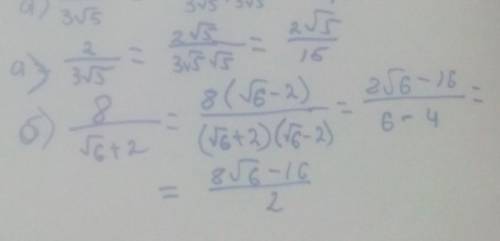 а) ——— 3√5 3√5 · 3√5
а) 2/(3√5) = 2√5/(3√5 √5) = 2√5/15
б) 8/(√6+2) = 8(√6-2)/((√6+2)(√6-2)) = (8√6-16)/(6-4) =
= (8√6-16)/2